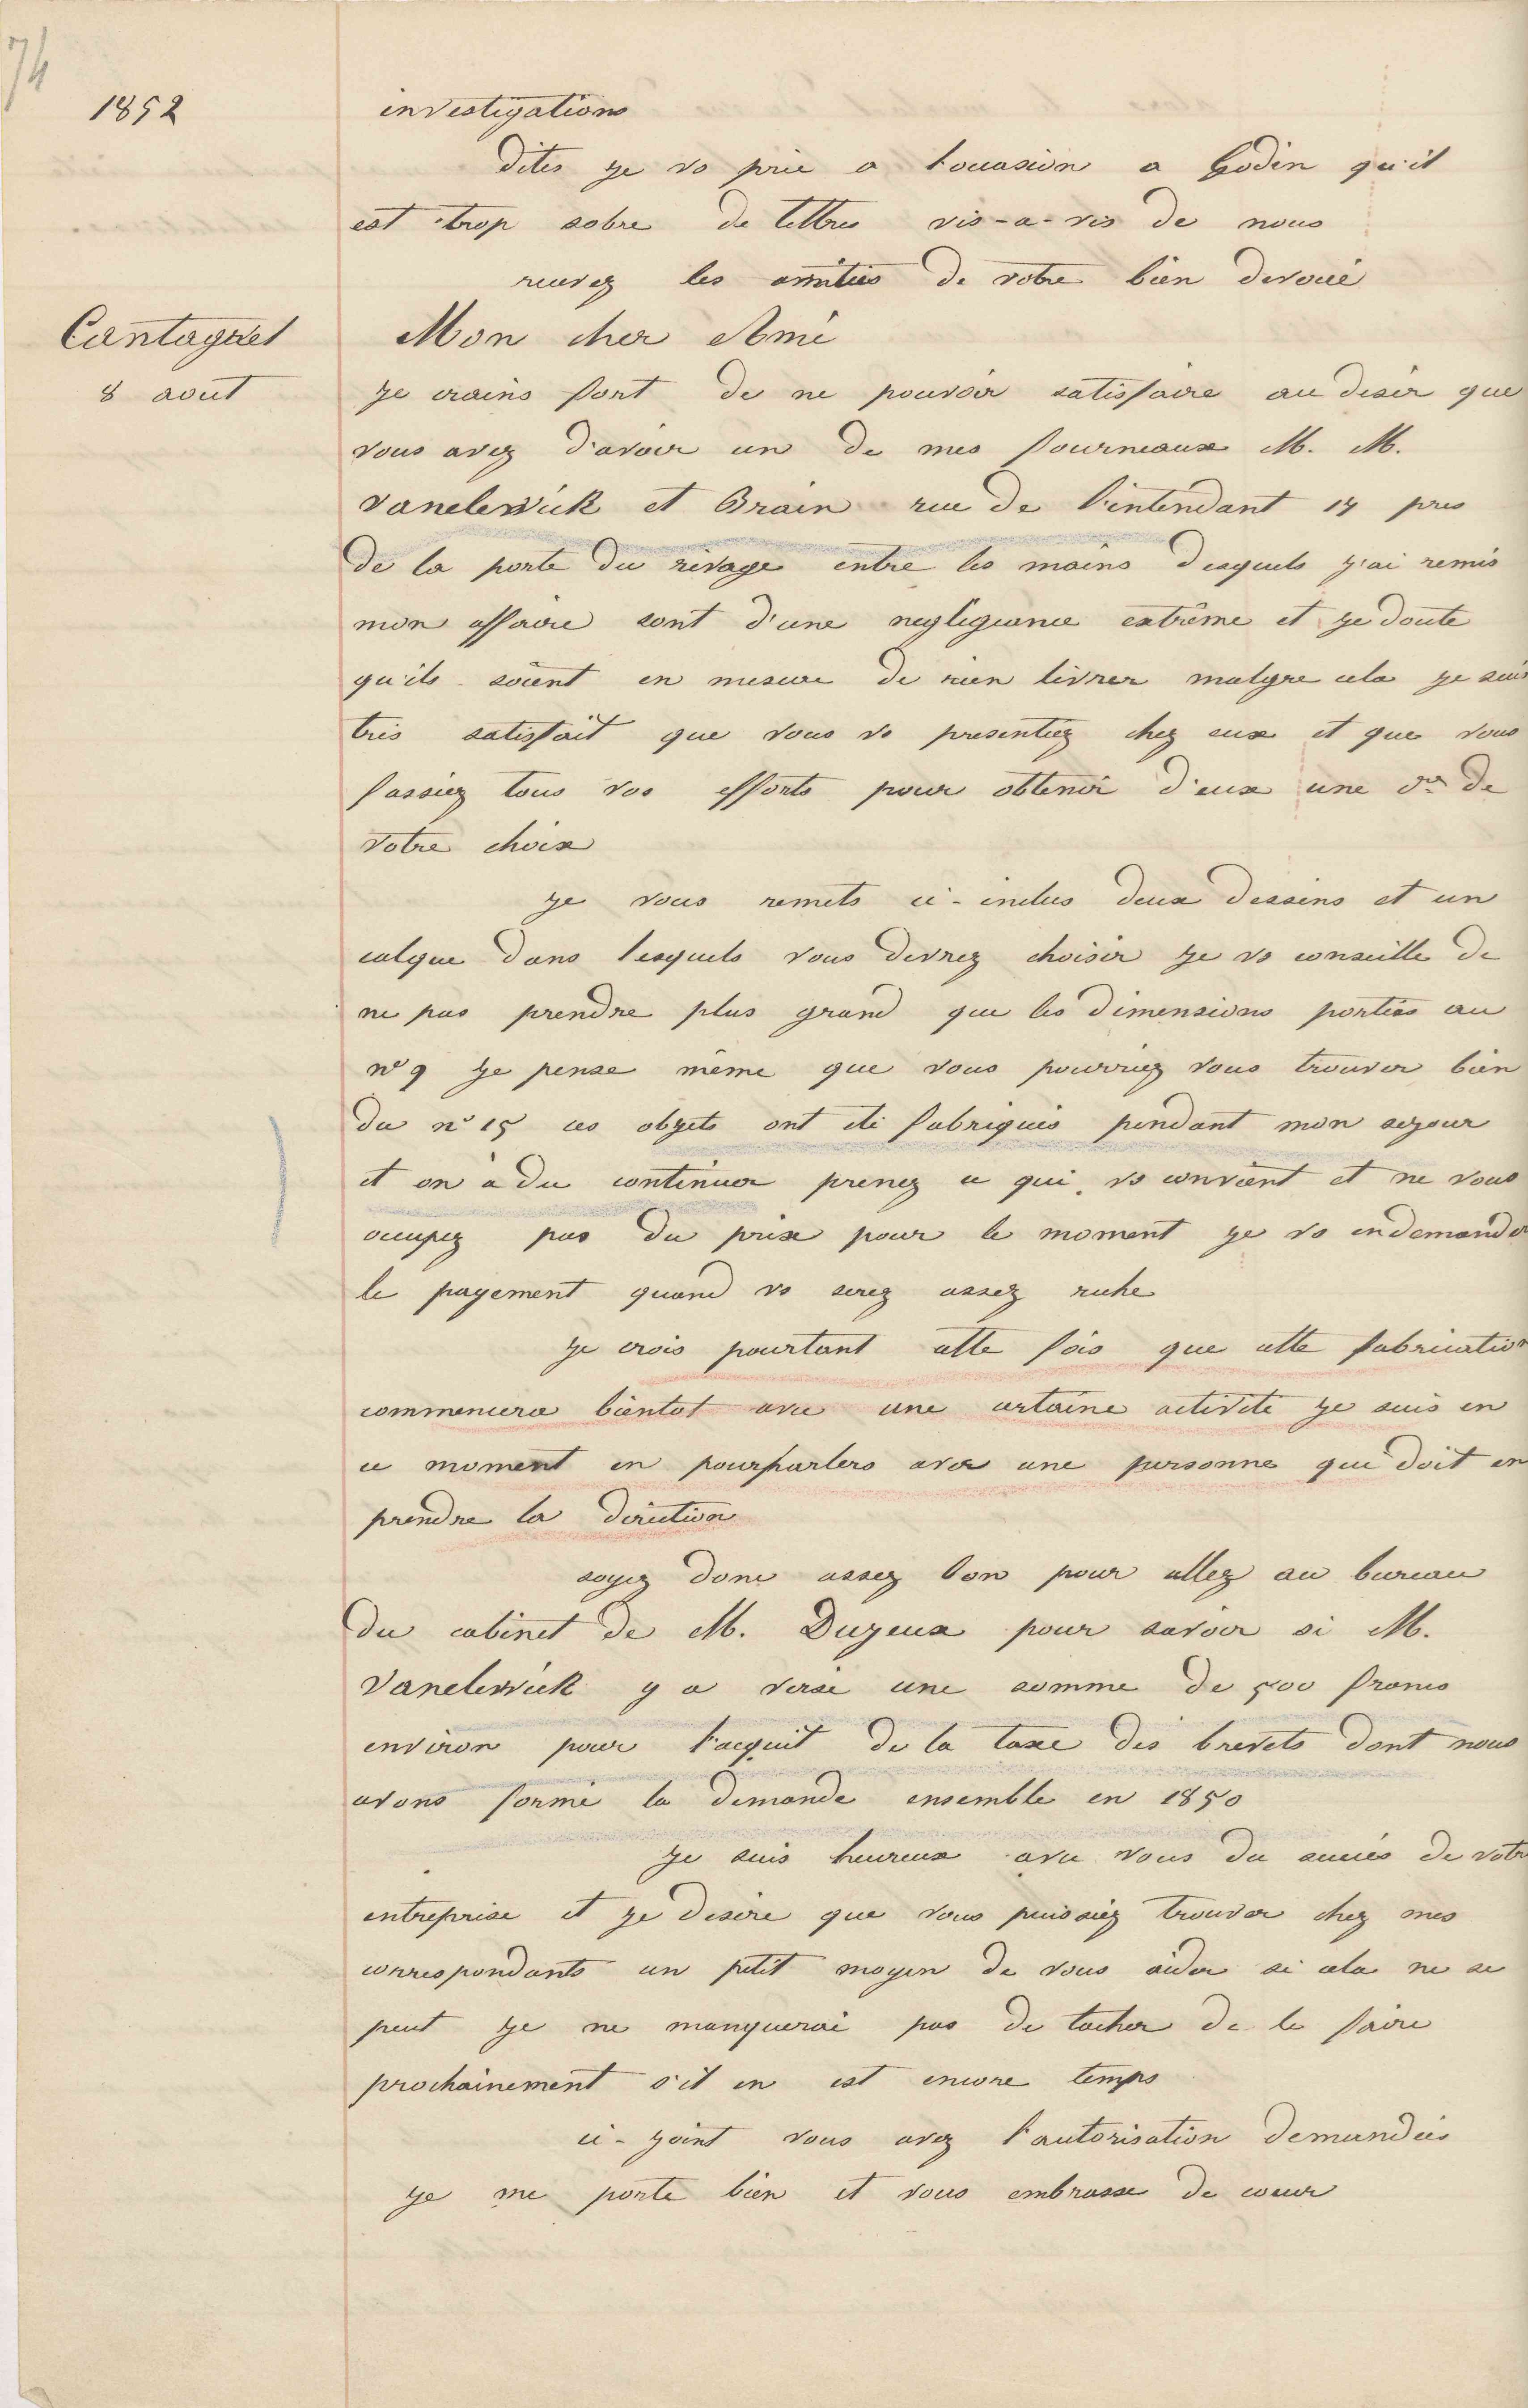 74
1852
investigations
dites je vs prie a l'occasion a Godin qu'il
est trop sobre de lettres vis-a-vis de nous
recevez les amitiés de votre bien dévoué
Cantagrel
8 aout
Mon cher Ami
je crains fort de ne pouvoir satisfaire au desir que
vous avez d'avoir un de mes fourneaux M. M.
Vanelewick et Brain rue de l'intendant 14 pres
de la porte du rivage entre les mains desquels j'ai remis
mon affaire sont d'une negligeance extrême et je doute
qu'ils soient en mesure de rien livrer malgre cela je suis
très satisfait que vous vs presentiez chez eux et que vous
fassiez tous vos efforts pour obtenir d'eux une de
votre choix
je vous remets ci-inclus deux dessins et un
calque dans lesquels vous devrez choisir je vs conseille de
ne pas prendre plus grand que les dimensions portées au
n° 9 je pense même que vous pourriez vous trouver bien
du n° 15 ces objets ont été fabriqués pendant mon sejour
et on a du continuer prenez ce qui vs convient et ne vous
occupez pas du prix pour le moment je vs en demander
le payement quand vs serez assez riche
je crois pourtant cette fois que cette fabrication
commencera bientot avec une certaine activité je suis en
ce moment en pourparlers avec une personne qui doit en
prendre la direction
soyez donc assez bon pour allez au bureau
du cabinet de M. Dugeux pour savoir si M.
Vanelewick y a versé une somme de 500 francs
environ pour l'acquit de la taxe des brevets dont nous
avons formé la demande ensemble en 1850
je suis heureux avec vous du succès de votre
entreprise et je desire que vous puissiez trouver chez mes
correspondants un petit moyen de vous aider si cela ne se
peut je ne manquerai pas de tacher de le faire
prochainement s'il en est encore temps
ci-joint vous avez l'autorisation demandée
je me porte bien et vous embrasse de coeur